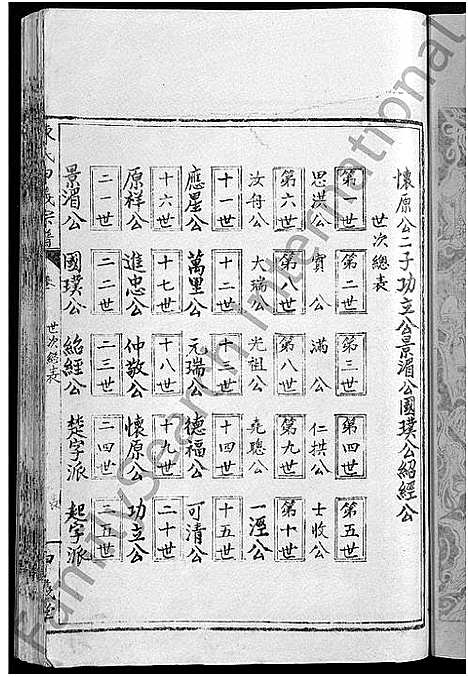 懷原公二子功立公景湄公國璞公紹經公
世次總表
第一世 第二世 第三世 第四世 第五世
思洪公 實公 滿公 仁拱公 士收公
第六世 第八世 第八世 第九世 第十世
汝舟公 大瑞公 光祖公 堯聰公 一溼公
十一世 十二世 十三世 十四世 十五世
應星公 萬里公 元瑞公 德福公 可清公
十六世 十七世 十八世 十九世 二十世
原祥公 進忠公 仲敬公 懷原公 功立公
二一世 二二世 二三世 二四世 二五世
景湄公 國璞公 紹經公 楚字派 起字派
氏四義宗譜
卷 世次總表
FamilySearch International